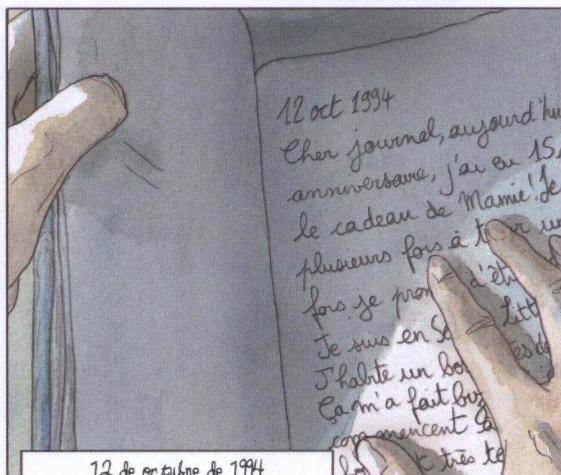 12 oct 1994
Cher journal, aujourd'hu
anniversaire, j'ai eu 15,
le cadeau de Mamie! Je
plusieurs fois à un
fois je d'ét
Je suis en
J'habite un
Ça m'a fait
commencent
très
12 de octubre de 1994